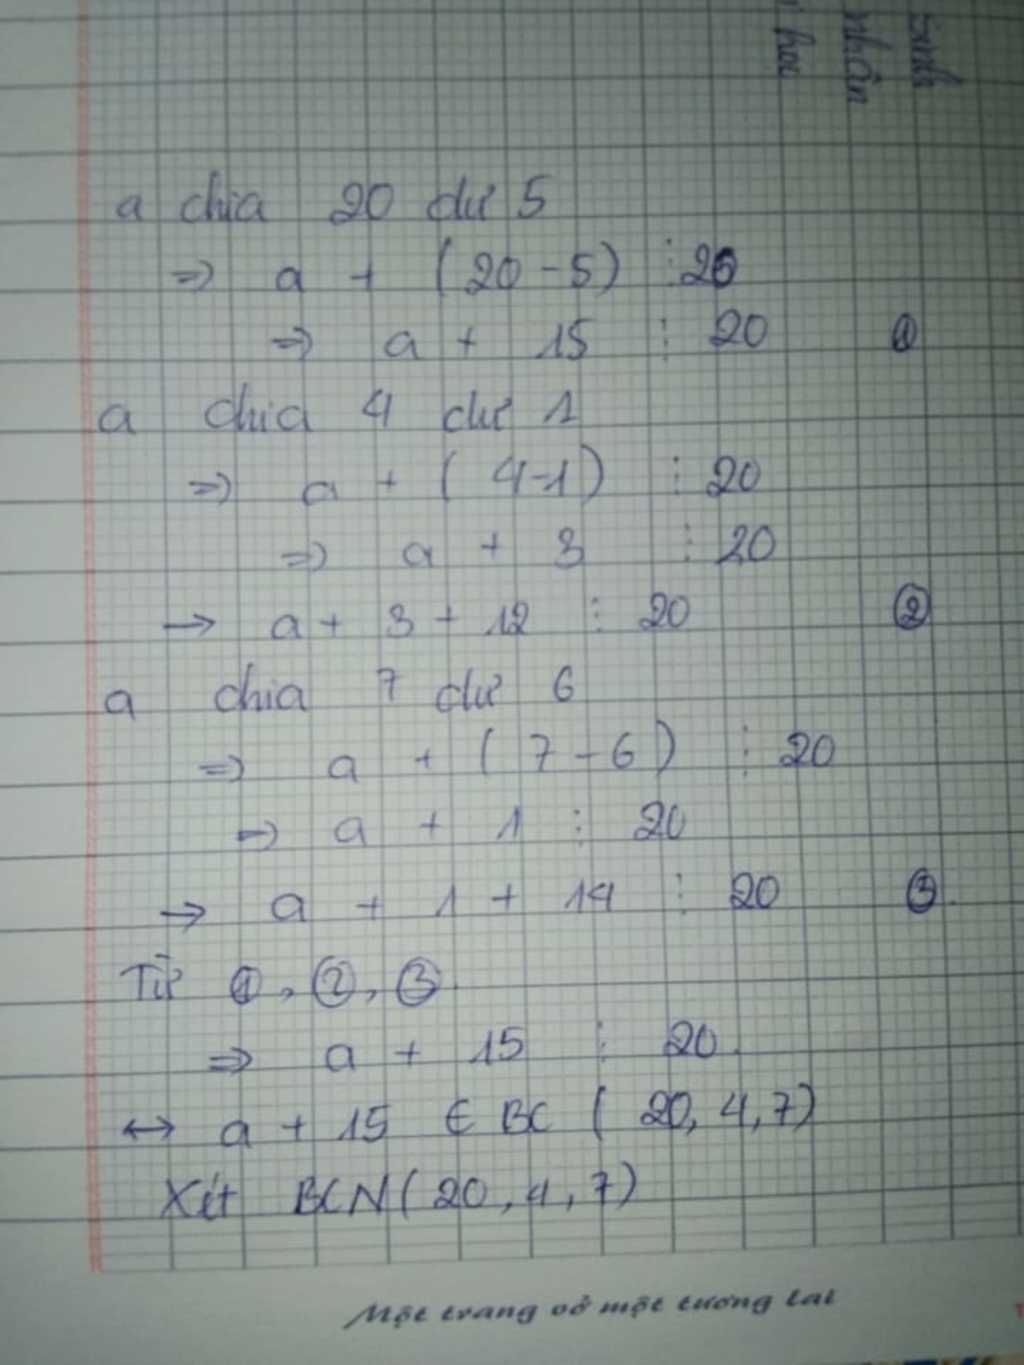 sinh
nhân
hoc
a chia 20 dư 5
=> a + (20 - 5) ⋮ 20
=> a + 15 ⋮ 20 ①
a chia 4 dư 1
=> a + ( 4-1) ⋮ 20
=> a + 3 ⋮ 20
→ a + 3 + 12 ⋮ 20 ②
a chia 7 dư 6
=> a + ( 7 - 6) ⋮ 20
=> a + 1 ⋮ 20
→ a + 1 + 14 ⋮ 20 ③
Từ ①, ②, ③
=> a + 15 ⋮ 20
↔ a + 15 ∈ BC ( 20, 4, 7)
Xét BCN( 20, 4, 7)
Một trang vở một tương lai